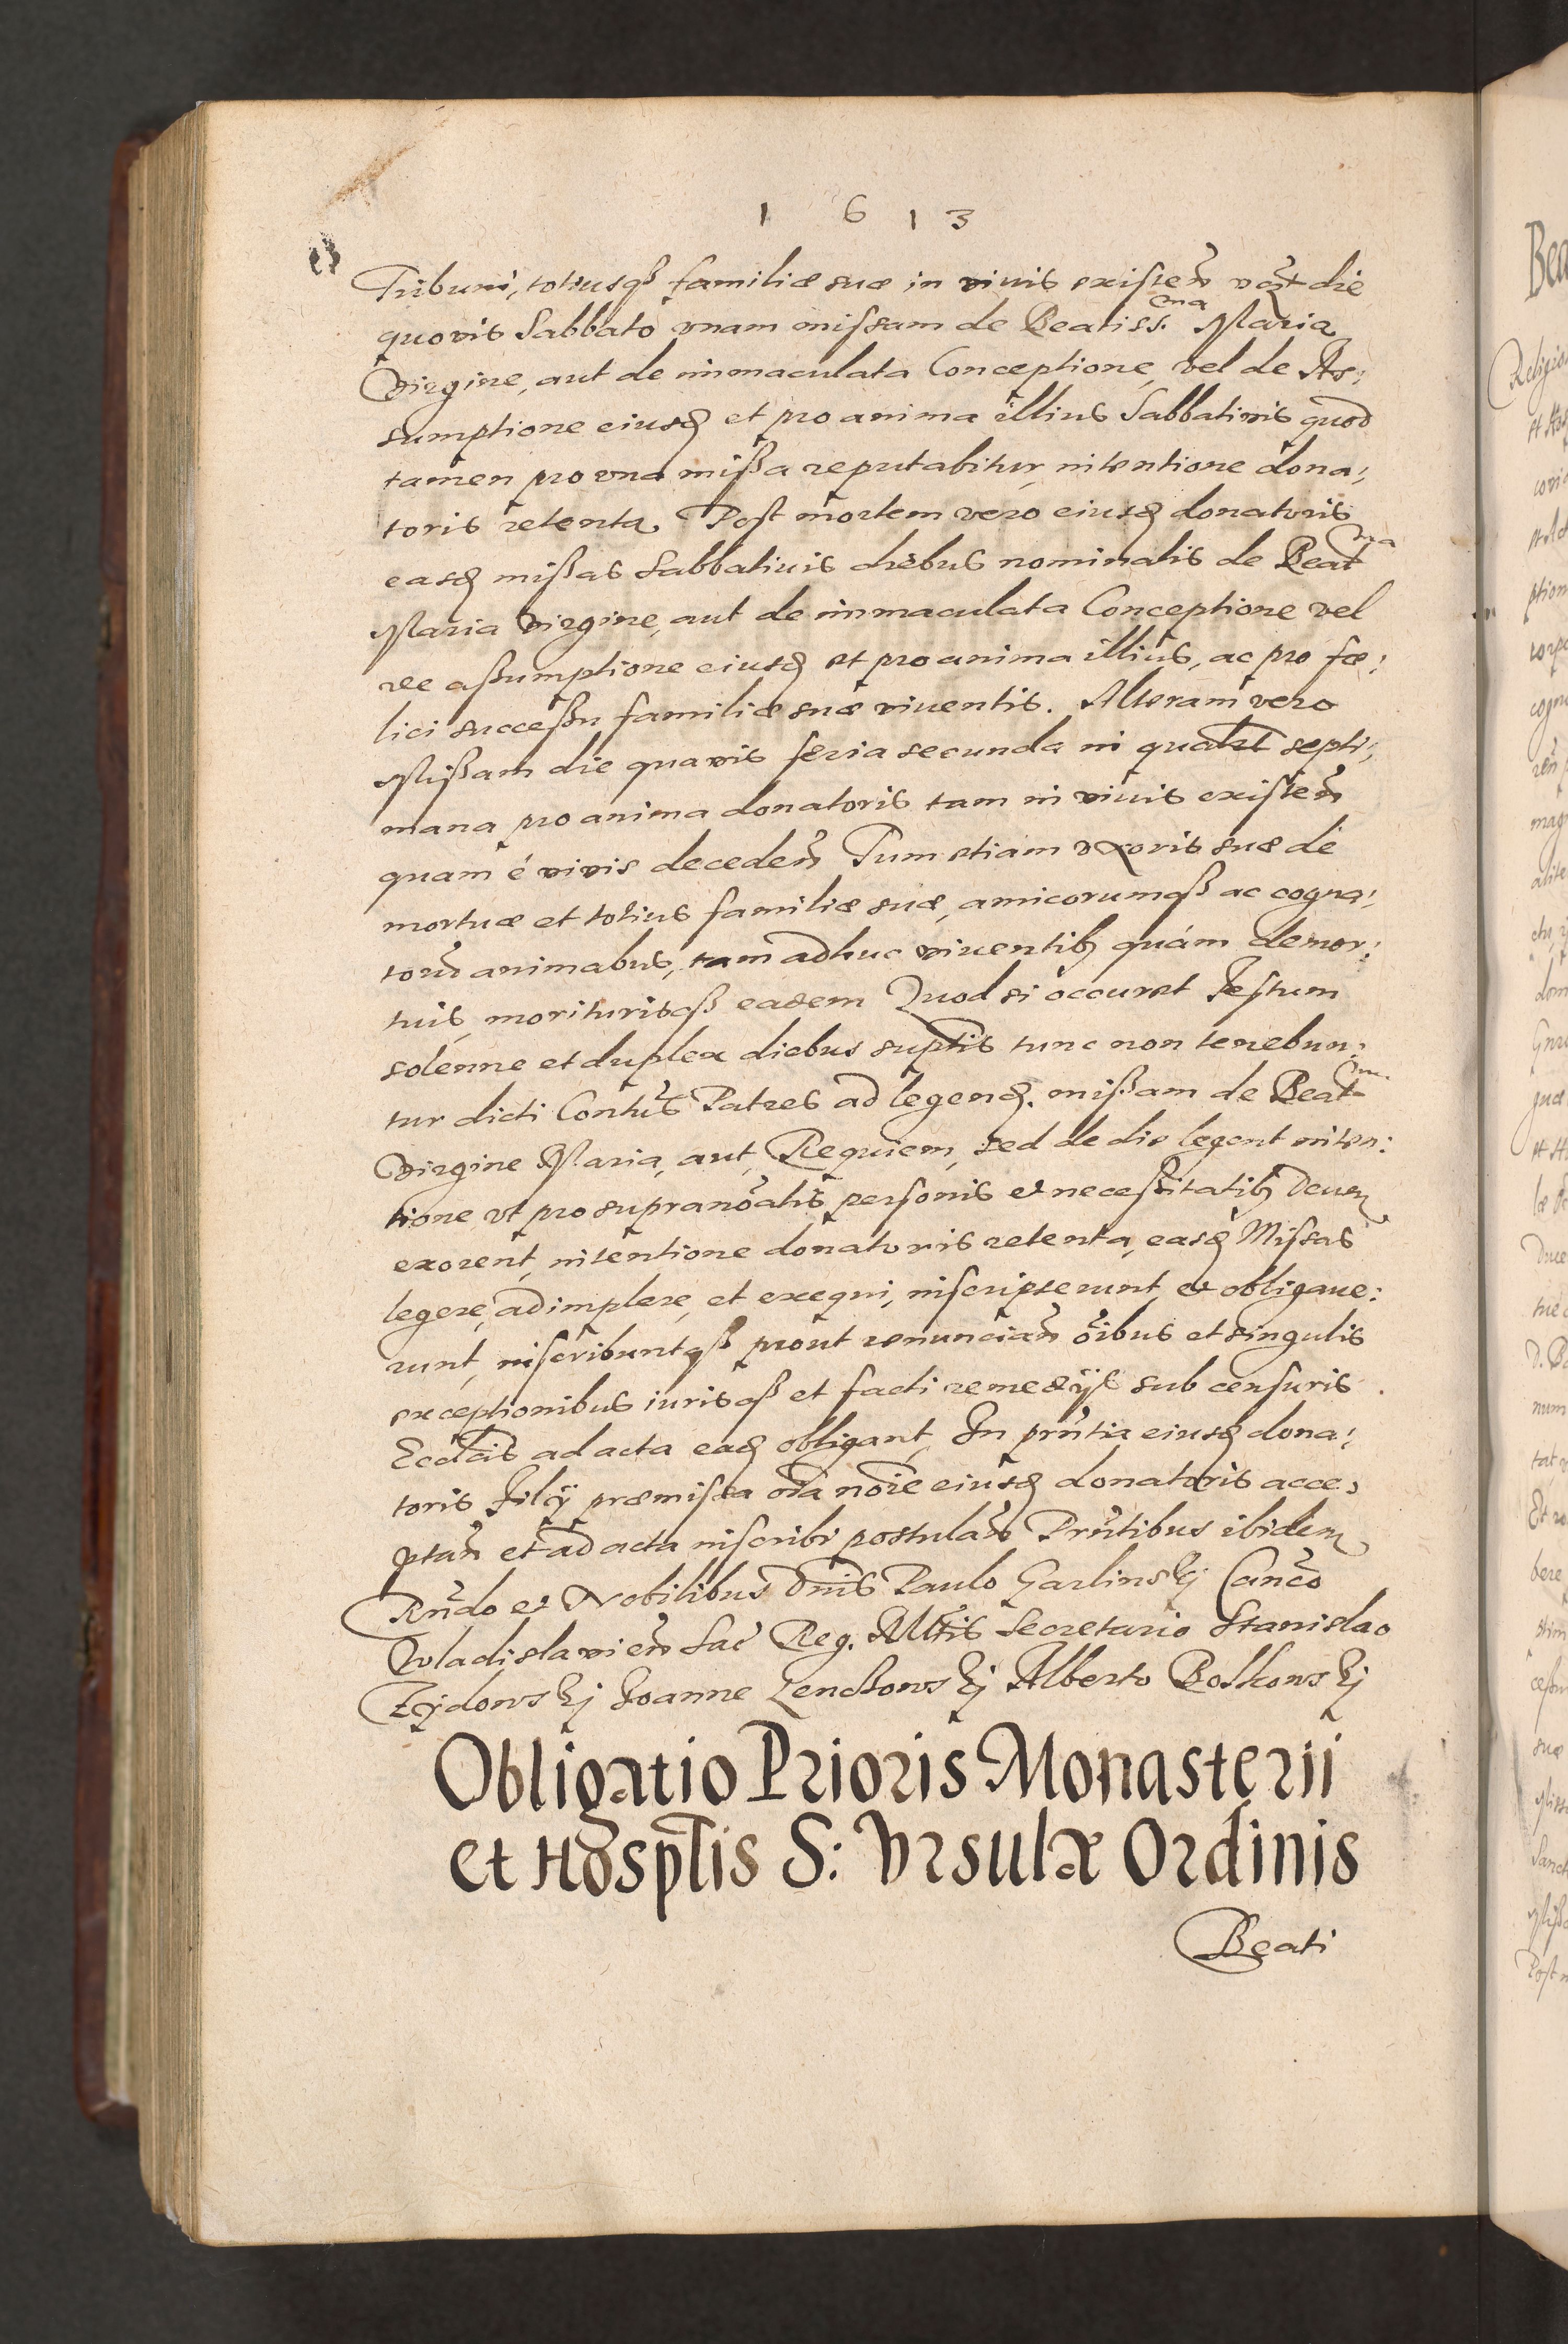 1 6 1 3
Tribuni, totiusqꝫ familiæ suæ in viuis existeñ
quouis Sabbato vnam missam de Beatiss.ma Maria
Virgine, aut de immaculata Conceptione, vel de As:
sumptione eiusd et pro anima illius Sabbatinis quod
tamen pro vna missa reputabitur, intentione dona:
toris retenta. Post mortem vero eiusd donatoris
easd missas Sabbatiuis diebus nominatis de Beatma
Maria Virgine, aut de immaculata Conceptione vel
de assumptione eiusd et pro anima illius, ac pro fæ:
lici successu familiæ suæ viuentis. Alteram vero
Missam die quauis feria secunda in qualt septi:
mana pro anima donatoris tam in viuis existeñ
quam é vivis decedeñ Tum etiam vxoris suæ de
mortuæ et totius familiæ suæ, amicorumqꝫ ac cogna:
torũ animabus, tam adhuc viuentibꝫ quám demor:
tuis, moriturisqꝫ eadem Quod si occurret Festum
solenne et duplex diebus suptis tunc non tenebun:
tur dicti Contũs Patres ad legend. missam de Beatma
Virgine Maria, aut, Requiem, sed de die legent inten:
tione vt pro supranõatis personis et necessitatibꝫ Deum
exorent, intentione donatoris retenta, easd Missas
legere, adimplere, et exequi, inscripserunt, et obligaue:
runt, inscribuntqꝫ prout renunciañ õibus et singulis
exceptionibus iurisqꝫ et facti remedijs sub censuris
Eccłcis ad acta ead obligant, In prñtia eiusd dona:
toris Filij præmissa oĩa noĩe eiusd donatoris acce:
ptañ et ad acta inscribi postulañ Prñtibus ibidem
Rñdo et Nobilibus Dnis Paulo Garlinskj Canco
Wladislavieñ Sac Reg. Mttis Secretario Stanislao
Zydowskj Joanne Lenckowskj Alberto Boskowskj
Obligatio Prioris Monasterii
et Hosptlis S: Vrsulæ Ordinis
Beati